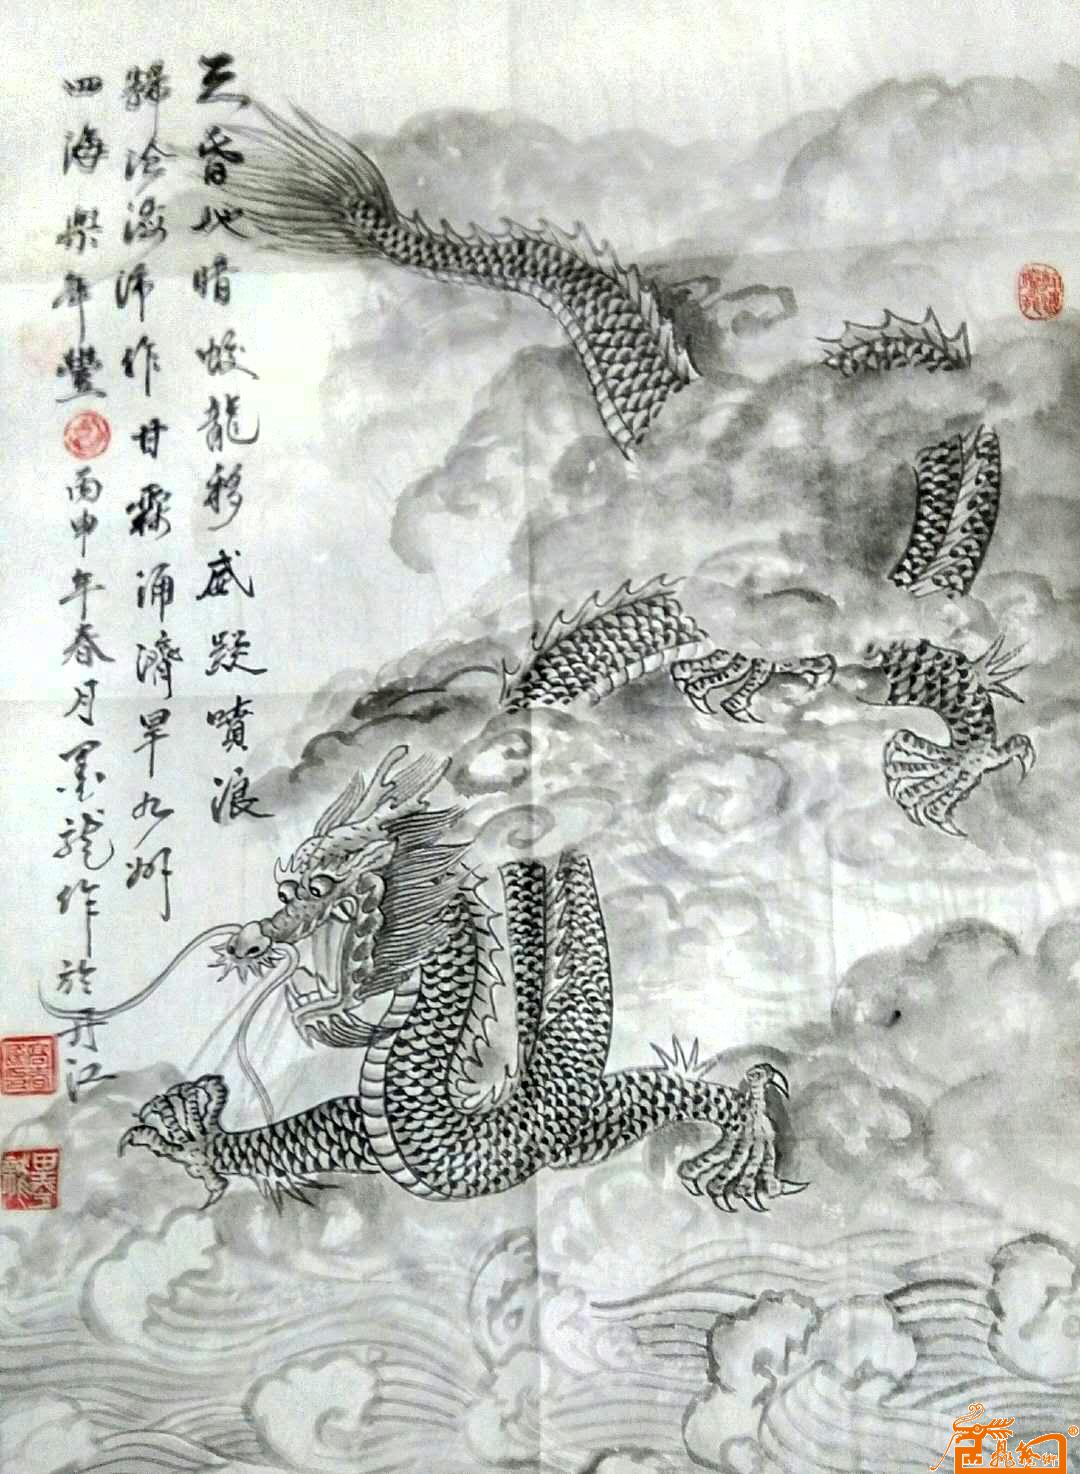 天昏地暗蛟龍移威跃噴浪
驛滄海沸作甘霖涌濟旱九州
四海樂年豐
丙申年春月墨龍作於丹江